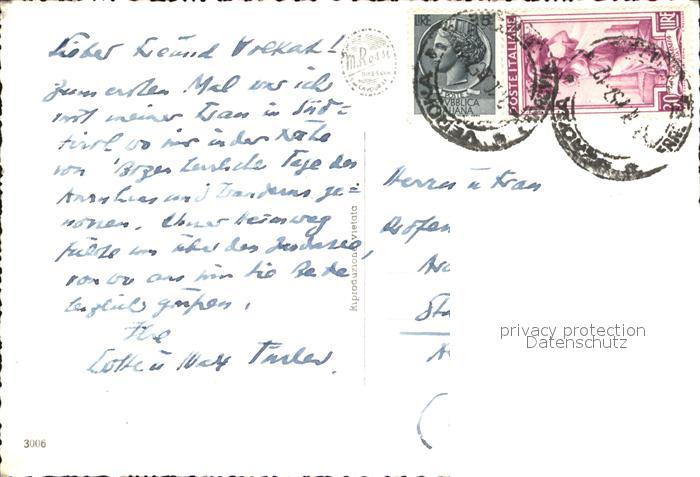 Lieber Freund Volkart!
zum ersten Mal war ich
mit meiner Frau in Süd=
tirol wo wir in der Nähe
von Bozen herrliche Tage des
Ausruhens und Wanderns ge=
nossen. Unser Heimweg
führte uns über den Gardasee,
von wo aus wir Sie Beide
herzlich grüßen.
Ihre
Lotte u Max
3006
m. Rossi
Riproduzione vietata
LIRE
POSTE ITALIANE
LIRE
20
VERONA
VERONA
Herrn u Frau
privacy protection
Datenschutz